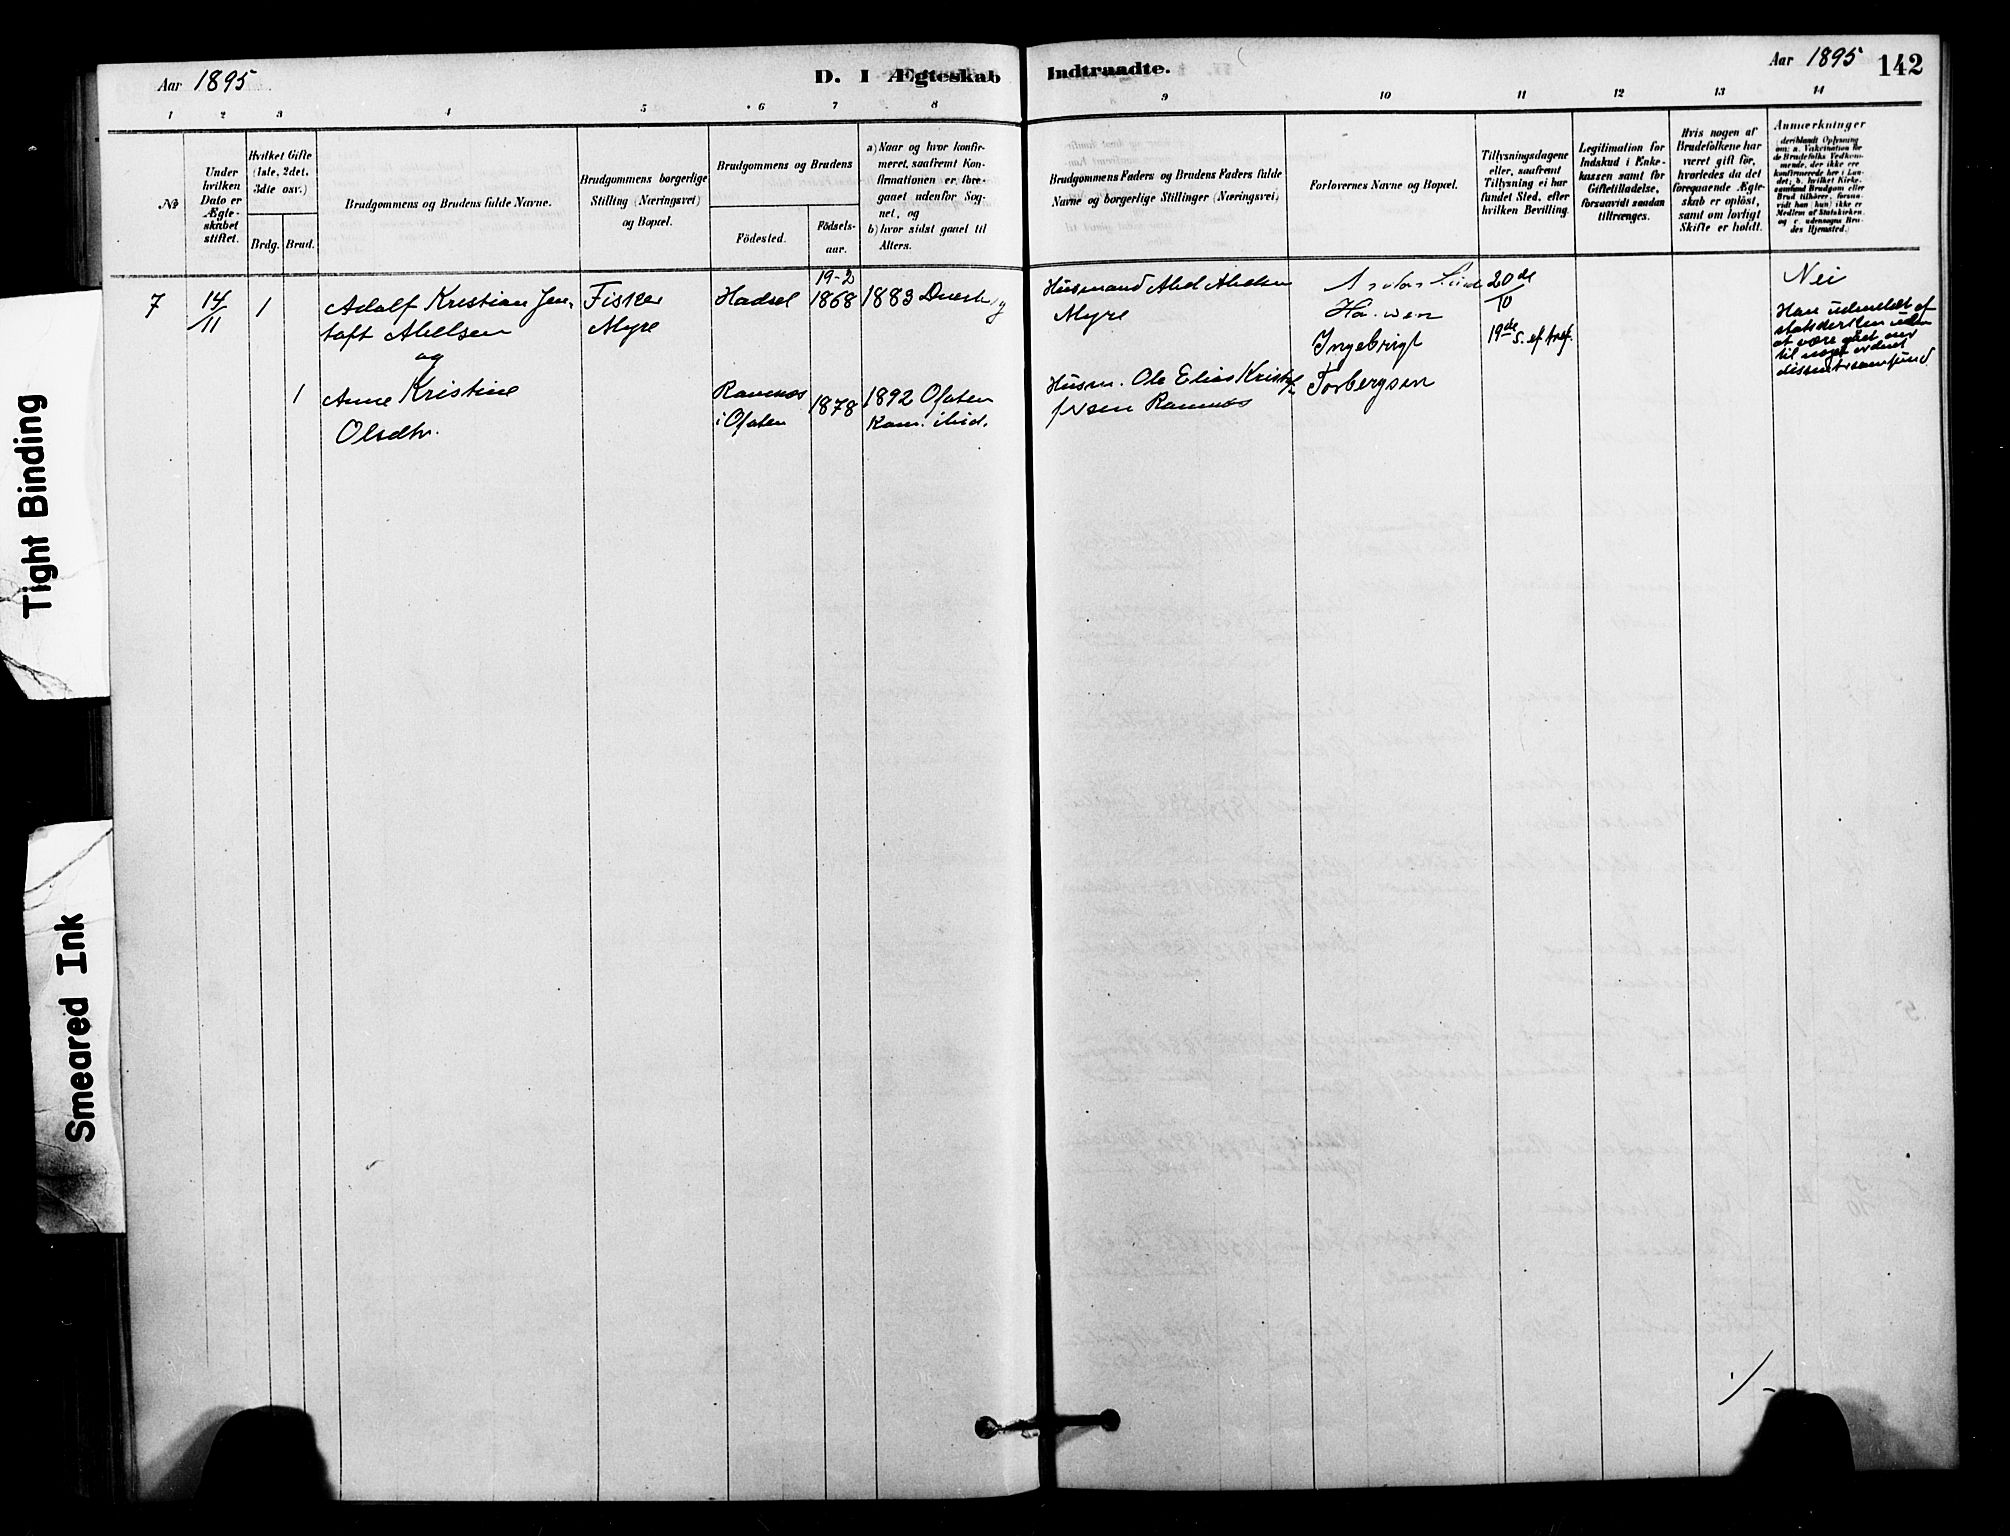 Aar 1895
D. I Ægteskab Indtraadte.
Aar 1895 142
1 2 3 4 5 6 7 8 9 10 11 12 13 14
No
Under hvilken Dato er Ægteskabet stiftet.
Hvilket Gifte (1ste, 2det, 3die osv.)
Brdg. Brud.
Brudgommens og Brudens fulde Navne.
Brudgommens borgerlige Stilling (Næringsvei) og Bopæl.
Brudgommens og Brudens
Födested.
Födselsaar.
a) Naar og hvor konfirmeret, saafremt Konfirmationen er foregaaet udenfor Sognet, og
b) hvor sidst gaaet til Alters.
Brudgommens Faders og Brudens Faders fulde
Navne og borgerlige Stillinger (Næringsvei)
Forlovernes Navne og Bopæl.
Tillysningsdagene
eller, saafremt
Tillysning ei har
fundet Sted, efter
hvilken Bevilling.
Legitimation for
Indskud i Enkekassen samt for
Giftetilladelse,
forsaavidt saadan
tiltrænges.
Hvis nogen af
Brudefolkene har
været gift för,
hvorledes da det
foregaaende Ægteskab er oplöst,
samt om lovligt
Skifte er holdt.
Anmærkninger
(deriblandt Oplysning
om: a. Vakcination för
de Brudefolks Vedkommende, der ikke ere
konfirmerede her i Landet; b. hvilket Kirkesamfund Brudgom eller
Brud tilhörer, forsaavidt han (hun) ikke er
Medlem af Statskirken,
og c. udensogns Brudes Hjemsted.)
7 14/11 1 Adolf Kristian Jentoft Abelsen
og
Fisker
Myre
Hadsel
19-2
1868
1883 Dverberg
Husmand Abel Abelsen
Myre
20de
10
19de s. ef tref.
Nei
1 Anne Kristine
Olsdtr.
Ramnæs
i Ofoten
1878
1892 Ofoten
Kom. ibid.
Husm. Ole Elias Kristofersen Ramnæs
Ingebrigt
Torbergsen
Han udmeldt af
statskirken uden
at være gået over
til noget ordnet
dissentersamfund
Tight Binding
Smeared Ink